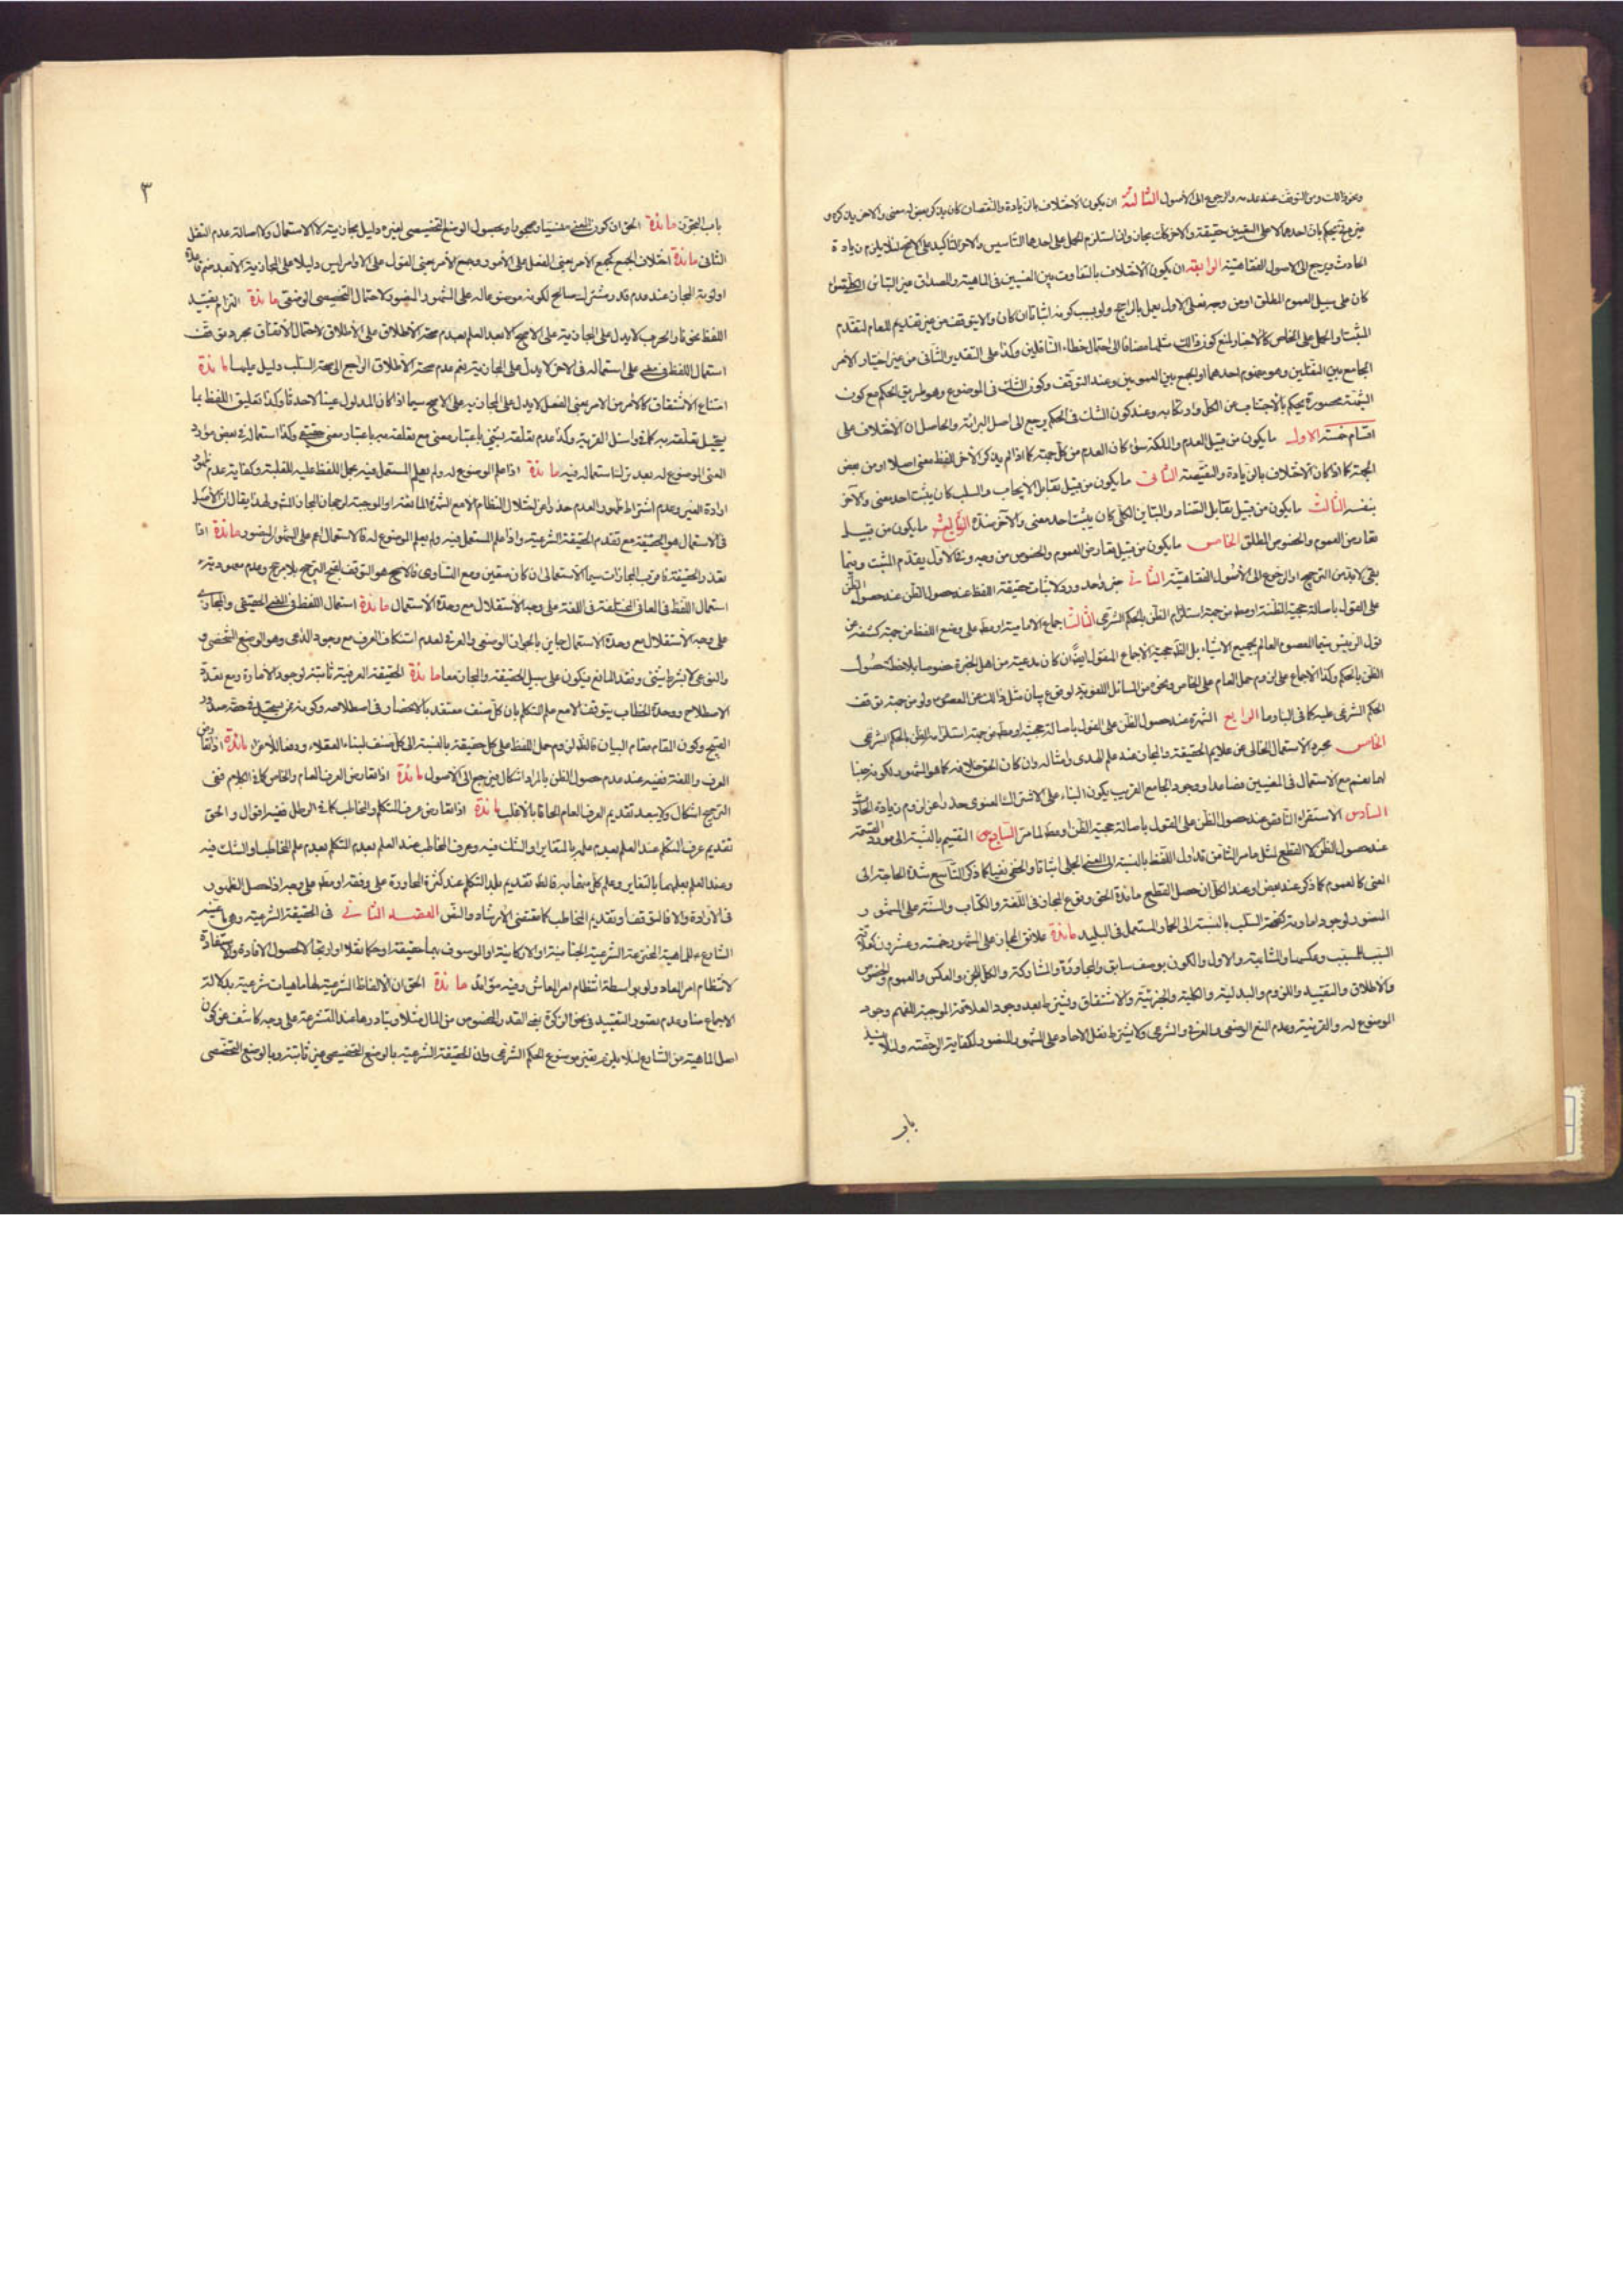 ونحو ذالك ومن التوقف عند عدمه والرجوع الى الاصول الثالثة ان يكون الاختلاف بالزيادة والنقصان كان يذكر بعض له معنى والاخر يذكره و
حقيقة والاخر كان مجاز وان استلزم الحمل على احدهما التاسيس والاخر التاكيد على الاصح لئلا يلزم زيادة
الحادث ويرجع الى الاصول الفقاهتية الرابعة ان يكون الاختلاف بالتفاوت بين المعنيين فى الماهية والمصداق
كان على سبيل العموم المطلق او من وجه فعلى الاول يعمل بالراجح ولو بسبب كونه اثباتا ان كان والا يتوقف من غير تقديم للعام لتقدم
المثبت او الحمل على الخاص كالاخبار لمنع كون ذالك مثلها مضافا الى احتمال خطاء الناقلين وكذا على التقدير الثانى من غير اختيار الامر
الجامع بين النقلين وهو عموم احدهما او الجمع بين العمومين وعند التوقف وكون الشك فى الموضوع وهو طريق الحكم مع كون
الشبهة محصورة يحكم بالاجتناب عن الكل وعند كون الشك فى الحكم يرجع الى اصل البرائة والحاصل ان الاختلاف على
اقسام خمسة الاول ما يكون من قبيل العدم والملكة سواء كان العدم من كل جهة كما اذا لم يذكر الاخر للفظ معنى اصلا او من بعض
الجهة كما اذا كان الاختلاف بالزيادة والنقيصة الثانى ما يكون من قبيل تقابل الايجاب والسلب كان يثبت احد معنى والآخر
ينفيه الثالث ما يكون من قبيل تقابل التضاد والتباين الكلى كان يثبت احد معنى والآخر ضده الرابع ما يكون من قبيل
تعارض العموم والخصوص المطلق الخامس ما يكون من قبيل تعارض العموم والخصوص من وجه وفى الاول يقدم المثبت وفيما
بقى لابد من الترجيح او الرجوع الى الاصول الفقاهتية الثانى خبر واحد ورد لاثبات حقيقة اللفظ عند حصول الظن
على القول باصالة حجية الظنة او مط من جهة استلزام الظن بالحكم الشرعى الثالث اجماع الامامية او مط على وضع اللفظ من جهة كشفه عن
قول الرئيس سيما المعصوم العالم بجميع الاشياء بل الظ حجية الاجماع المنقول ايضا ان كان مدعيه من اهل الخبرة خصوصا بملاحظة حصول
الظن بالحكم وكذا الاجماع على لزوم حمل العام على الخاص ونحوه من المسائل اللغوية لوقوع بيان مثل ذالك عن المعصوم ولو من جهة توقف
الحكم الشرعى عليه كما فى الباء وما الرابع الشهرة عند حصول الظن على القول باصالة حجيته او مط من جهة استلزامه للظن بالحكم الشرعى
الخامس مجرد الاستعمال الخالى عن علايم الحقيقة والمجاز عند علم الهدى وامثاله وان كان الحق خلافه كما هو المشهور
نعم مع الاستعمال فى المعنيين فصاعدا ووجود الجامع القريب يكون البناء على الاشتراك المعنوى حذرا عن لزوم زيادة الحادث
السادس الاستقراء الناقص عند حصول الظن على القول باصالة حجية الظن او مط لما مر السابع التقسيم بالنسبة الى مورد القسمة
عند حصول الظن لا القطع لمثل ما مر الثامن تداول اللفظ بالنسبة الى المعنى الجلى اثباتا والخفى نفيا كما ذكر التاسع شدة الحاجة الى
المعنى كالعموم كما ذكر عند بعض او عند الكل ان حصل القطع مائدة الحق وقوع المجاز فى اللغة والكتاب والسنة على المشهور
المنصور لوجود اماراته كصحة السلب بالنسبة الى الحمار المستعمل فى البليد مائدة علائق المجاز على المشهور خمسة وعشرون كعلاقة
السبب للمسبب وعكسها والمشابهة والاول والكون بوصف سابق والمجاورة والمشاركة والكل للجزء والعكس والعموم والخصوص
والاطلاق والتقييد واللزوم والبدلية والكلية والجزئية والاشتقاق ويشترط بعد وجود العلاقة الموجبة للفهم وجود
الموضوع له والقرينة وعدم المنع الوضعى والعرفى والشرعى ولا يشترط نقل الاحاد على المشهور المنصور لكفاية الرخصة ولئلا ينسد
باب
٣
باب التجوز مائدة الحق ان كون المعنى منسيا وحصول الوضع التخصيصى لغيره دليل مجازيته لا الاستعمال ولا اصالة عدم النقل
الثانى مائدة اختلاف الجمع كجمع الامر بمعنى الفعل على الامور وجمع الامر بمعنى القول على الاوامر ليس دليلا على المجازية
اولوية المجاز عند عدم قدر مشترك صالح لكونه موضوعا له على المشهور المنصور لاحتمال التخصيص الوضعى مائدة التزام تقييد
اللفظ نحو نار الحرب لا يدل على المجازية على الاصح الا بعد العلم بعدم صحة الاطلاق على الاطلاق لاحتمال الاتفاق مجرد توقف
استعمال اللفظ فى معنى على استعماله فى الاخر لا يدل على المجازية نعم عدم صحة الاطلاق الراجع الى صحة السلب دليل عليها مائدة
امتناع الاشتقاق كالامر من الامر بمعنى الفعل لا يدل على المجازية على الاصح سيما اذا كان المدلول عينا لا حدثا وكذا تعليق اللفظ بما
يستحيل تعلقه به كما فى واسئل القرية وكذا عدم تعلقه بشئ باعتبار معنى مع تعلقه به باعتبار معنى حقيقى وكذا استعماله فى بعض موارد
المعنى الموضوع له بعد ترك استعماله فيه مائدة اذا علم الموضوع له ولم يعلم المستعمل فيه يحمل اللفظ عليه للغلبة وكفاية عدم ظهور
ارادة الغير وعدم اشتراط ظهور العدم حذرا عن اختلال النظام الا مع الشهرة المانعة او الموجبة لرجحان المجاز المشهور لهذا يقال ان الاصل
فى الاستعمال هو الحقيقة مع تقدم الحقيقة الشرعية واذا علم المستعمل فيه ولم يعلم الموضوع له فالاستعمال اعم على المشهور المنصور مائدة اذا
تعذر الحقيقة فاقرب المجازات سيما الاستعمالى ان كان متعين ومع التساوى فالاصح هو التوقف لقبح الترجيح بلا مرجح وعدم معهودية
استعمال اللفظ فى المعانى المختلفة فى اللغة على وجه الاستقلال مع وحدة الاستعمال مائدة استعمال اللفظ فى المعنى الحقيقى والمجازى
على وجه الاستقلال مع وحدة الاستعمال جايز بالجواز الوضعى والعرفى لعدم استنكاف العرف مع وجود الداعى وهو الوضع الشخصى و
والنوعى لا بشرط شئ وفقد المانع فيكون على سبيل الحقيقة والمجاز معا مائدة الحقيقة العرفية ثابتة لوجود الامارة ومع تعدد
الاصطلاح ووحدة الخطاب يتوقف الا مع علم المتكلم بان كل صنف معتقد بالانحصار فى اصطلاحه وكونه ممن يستحيل فى حقه صدور
القبيح وكون المقام مقام البيان فالظ لزوم حمل اللفظ على كل حقيقة بالنسبة الى كل صنف لبناء العقلاء ودفعا للاغراء مائدة اذا تعارض
العرف واللغة ففيه عند عدم حصول الظن بالمراد اشكال فيرجع الى الاصول مائدة اذا تعارض العرف العام والخاص كما فى الكلام ففى
الترجيح اشكال ولا يبعد تقديم العرف العام الحاقا بالاغلب مائدة اذا تعارض عرف المتكلم والمخاطب كما فى الرطل ففيه اقوال والحق
تقديم عرف المتكلم عند العلم بعدم علمه بالتغاير او الشك فيه وعرف المخاطب عند العلم بعدم التكلم بعدم علم المخاطب او الشك فيه
وعند العلم بعلمهما بالتغاير وعلم كل منهما به فالظ تقديم بلد المتكلم عند كثرة المحاورة على وفقه او مط على وجه اذا حصل الظهور
فى الارادة والا فالتوقف او تقديم المخاطب كما يقتضى الارشاد والنص المقصد الثانى فى الحقيقة الشرعية وهى ما عينه
الشارع للماهية المخترعة الشرعية الجنانية او الاركانية او الموصوف بها حقيقة او حكما نقلا او ارتجالا لحصول الافادة والاستفادة
لانتظام امر المعاد ولو بواسطة انتظام امر المعاش وفيه موائد مائدة الحق ان الالفاظ الشرعية لها ماهيات شرعية بدلالة
الاجماع منا وعدم تصور التقييد فى نحو الزكوة بمعنى القدر المخصوص من المال مثلا وتبادرها عند المتشرعة على وجه كاشف عن كون
اصل الماهية من الشارع لئلا يلزم تغيير موضوع الحكم الشرعى وان الحقيقة الشرعية بالوضع التخصيصى غير ثابتة وبالوضع التخصصى